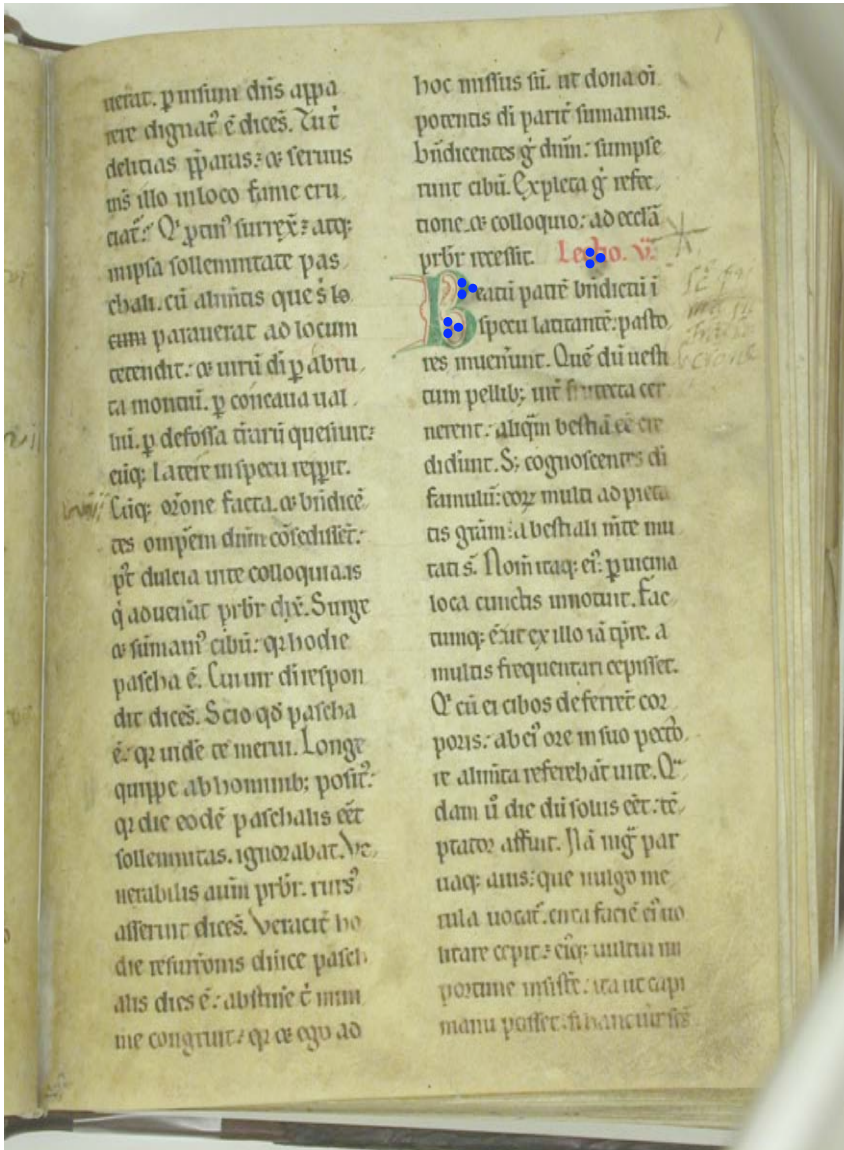 uerat. p uisum dn̄s appa
rere dignat᷑ ē dicēs. Tu t̄
delitias p̄paras: ⁊ seruus
m̄s illo in loco fame cru
ciat᷑. Q͛ ptin᷒ surrex̄: atq;
in ipsa sollemnitate pas
chali. cū alim̄tis que s̄
parauerat ad locum
tetendit: ⁊ uirū di p abru
ta montiū. p concaua ual
liū. p defossa t̄rarū quesiuit:
eūq; latere in specu repp̄it.
Cūq; orōne facta. ⁊ bn̄dicē
tes omp̄em dn̄m cōsedissēt:
p̄t dulcia uite colloquia. is
q̇ aduenāt pr̄br dix̄. Surge
⁊ sumam᷒ cibū: qꝛ hodie
pascha ē. Cui uir di respon
dit dicēs. Scio qd̄ pascha
ē: qꝛ uidē te merui. Longe
quippe ab hominib; posit᷒:
qꝛ die eodē paschalis eēt
sollemnitas. ignorabat. Ve
nerabilis aūm pr̄br. rurs᷒
asseruit dicēs. Veracit̄ ho
die resurr̄onis dn̄ice pasch
alis dies ē: abstinē t̄ mini
me congruit: qꝛ ⁊ ego ad
hoc missus sū. ut dona oī
potentis di parit̄ sumamus.
bn̄dicentes g̊ dn̄m: sumpse
runt cibū. Expleta g̊ refec
tione. ⁊ colloquio: ad eccl̄ā
pr̄br recessit. Lectio. v.
Beatū patrē bn̄dictū ī
specu latitantē: pasto
res inuen̄unt. Quē dū uesti
tum pellib; int̄ frutecta cer
nerent: aliq̄m bestiā eē cre
didiunt. S; cognoscentes di
famulū: eoꝝ multi ad pieta
tis grām: a bestiali mīte mu
tati s̄. Nom̄ itaq; ei᷒: p uicina
loca cunctis innotuit. Fac
tumq; ē: ut ex illo iā tp̄re. a
multis frequentari cepisset.
Q͛ cū ei cibos deferrēt cor
poris: ab ei᷒ ore in suo pecto
re alim̄ta referebāt uite. Qͣ
dam ū die dū solus eēt: tē
ptator affuit. Nā nig̊ par
uaq; auis: que uulgo me
rula uocat᷑. circa faciē ei᷒ uo
litare cepit: eiq; uultui in
portune insistē: ita ut capi
manu posset. si hanc uir sc̄s